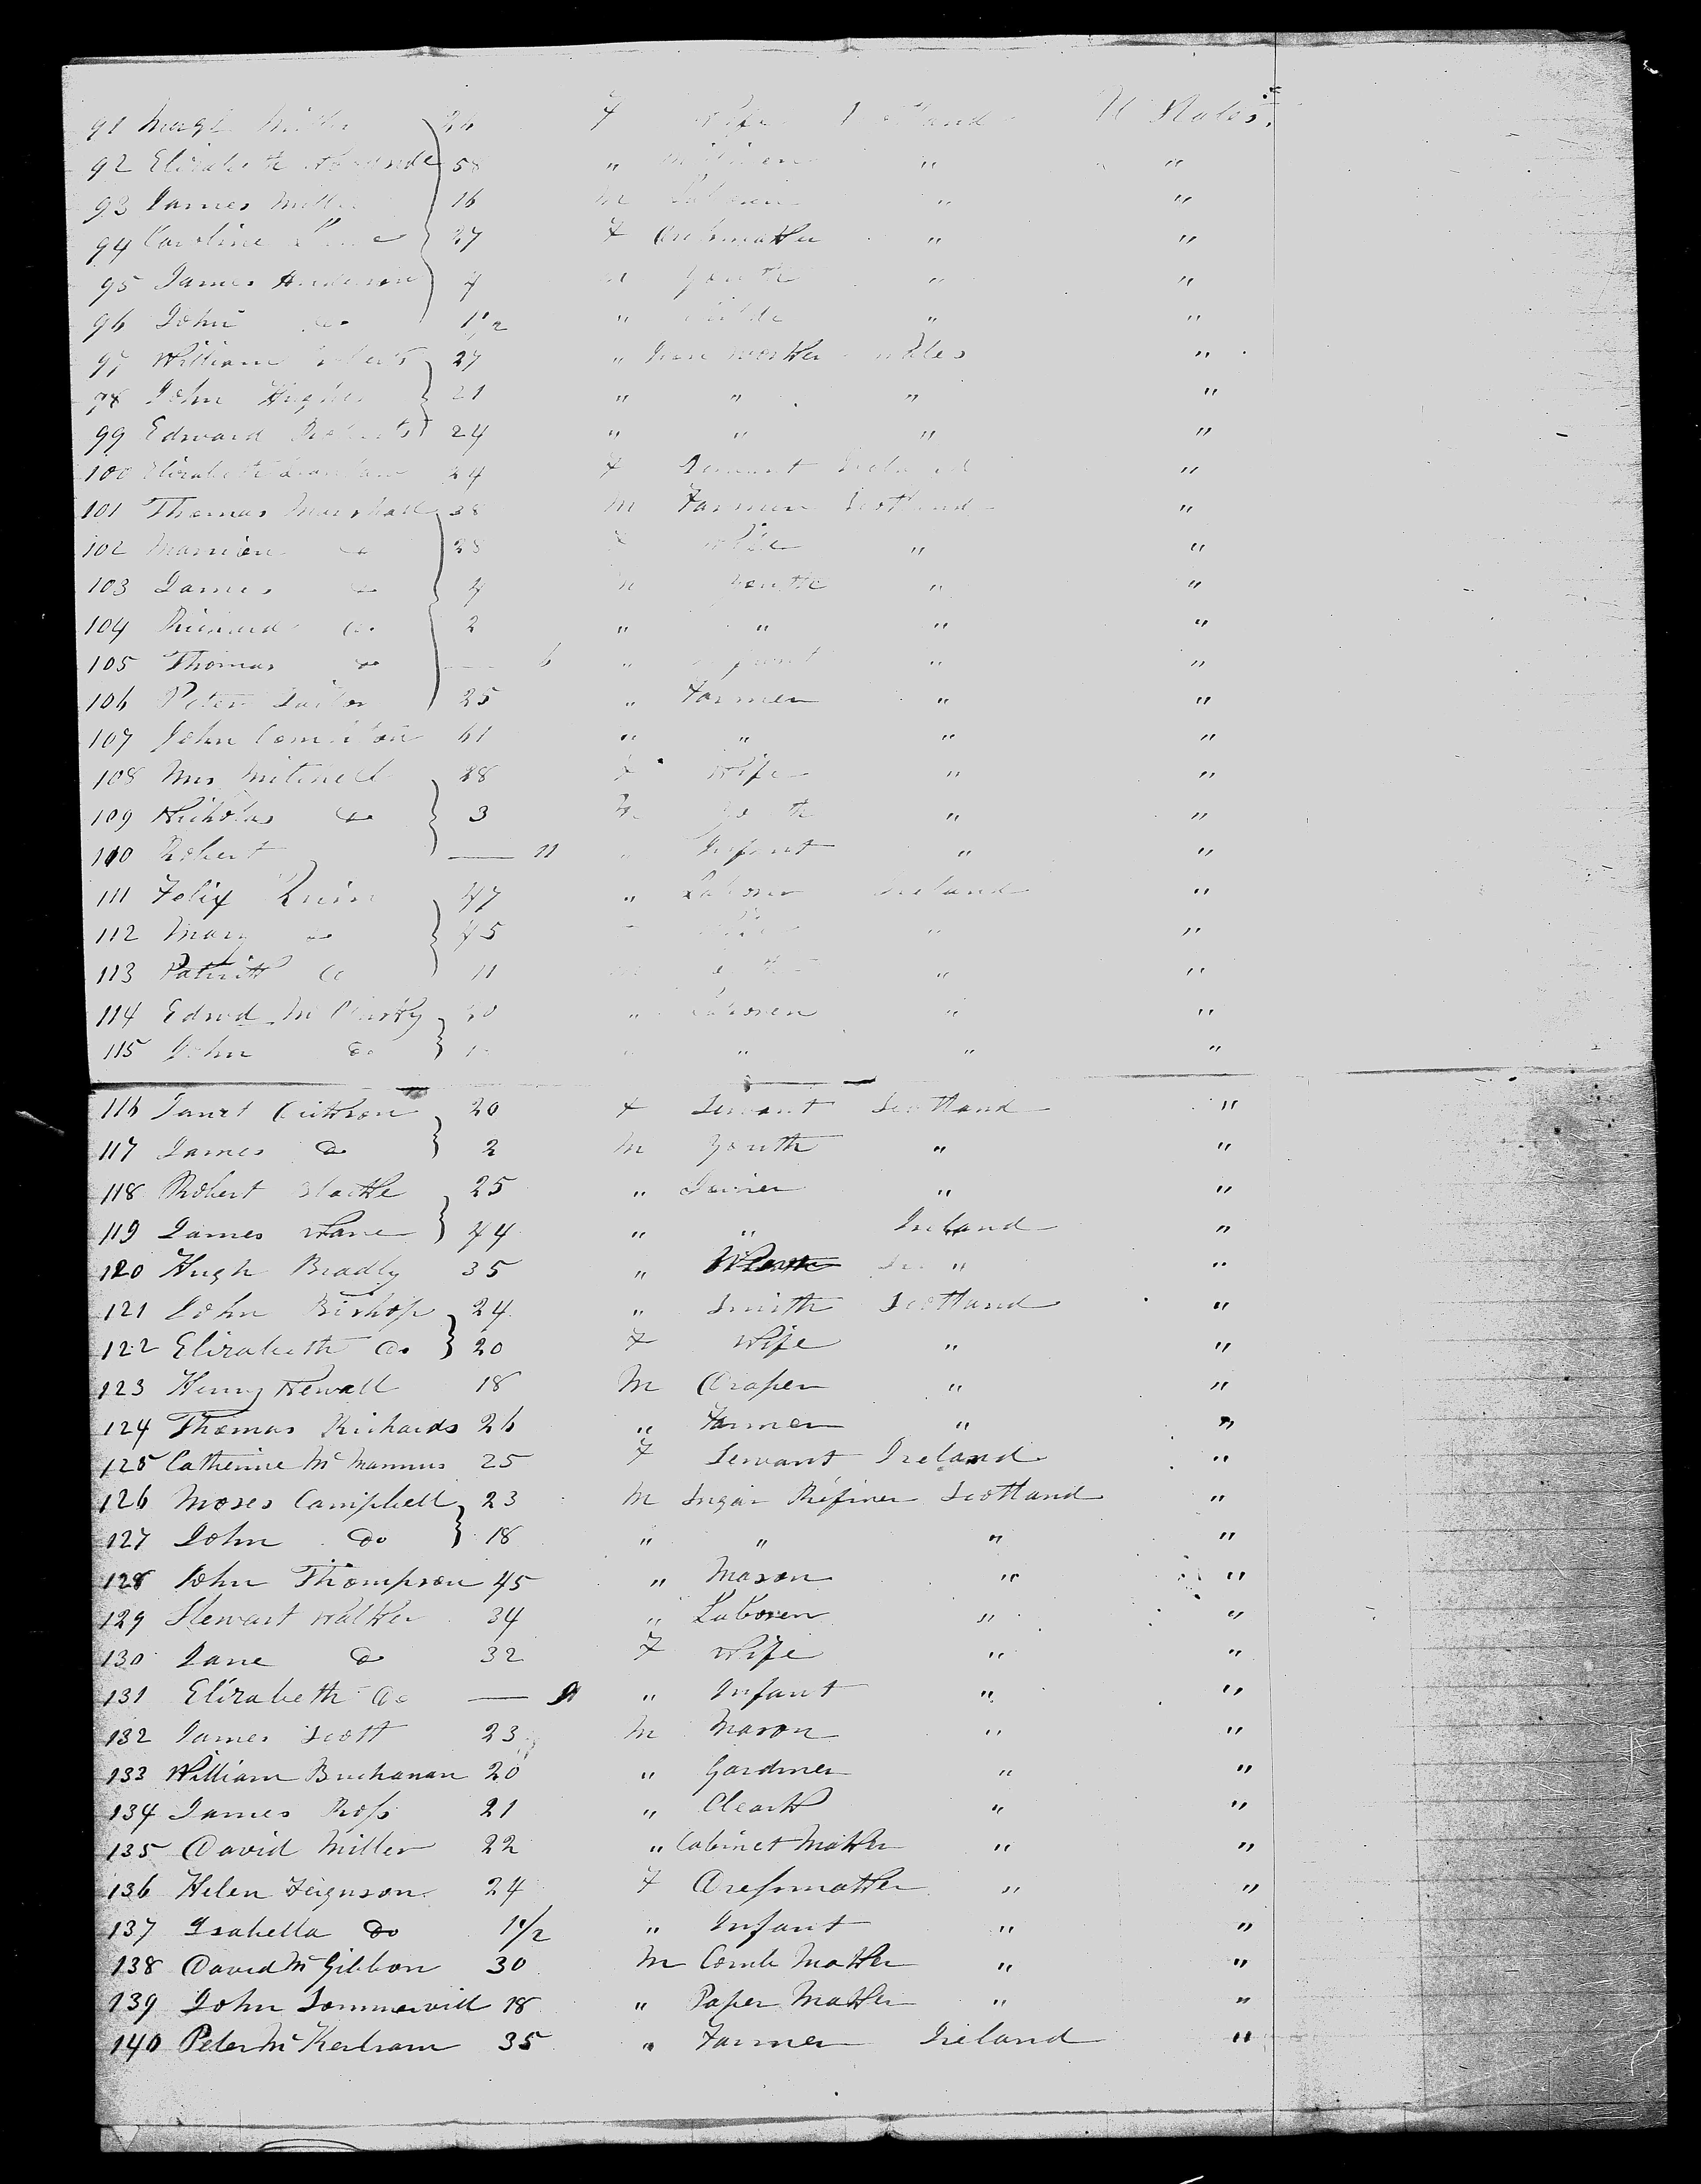 91 Margt Miller 26 F Wife U States
92 Elizabeth 58 " " "
93 James Miller 16 M " "
94 Caroline 27 F Dressmaker " "
95 James Anderson 7 M Youth " "
96 John do 1 1/2 " Childe " "
97 William 27 " Iron Worker Wales "
98 John Hughes 21 " " " "
99 Edward Roberts 24 " " " "
100 Elizabeth 24 F Servant Ireland "
101 Thomas Marshall 38 M Farmer Scotland "
102 Marrion do 28 F Wife " "
103 James do 4 M Youth " "
104 Richard do 2 " " " "
105 Thomas do — 6 " Infant " "
106 Peter 25 " Farmer " "
107 John 61 " " " "
108 Mrs Mitchell 28 F Wife " "
109 Nicholas do 3 M Youth " "
110 Robert — 11 " Infant " "
111 Felix Quinn 47 " Laborer Ireland "
112 Mary do 45 Wife " "
113 Patrick do 11 Youth " "
114 Edwd 20 " Laborer " "
115 John do " " " "
116 Janet 20 F Servant Scotland "
117 James do 2 M Youth " "
118 Robert 25 " Joiner " "
119 James 44 " " Ireland "
120 Hugh Bradly 35 " " "
121 John Bishop 24 " Smith Scotland "
122 Elizabeth do 20 F Wife " "
123 Henry Newall 18 M Draper " "
124 Thomas Richards 26 " Farmer " "
125 Catherine McMannus 25 F Servant Ireland "
126 Moses Campbell 23 M Sugar Refiner Scotland "
127 John do 18 " " " "
128 John Thompson 45 " Mason " "
129 Stewart Walker 34 " Laborer " "
130 Jane do 32 F Wife " "
131 Elizabeth do — " Infant " "
132 James Scott 23 M Mason " "
133 William Buchanan 20 " Gardner " "
134 James Ross 21 " Cleark " "
135 David Miller 22 " Cabinet Maker " "
136 Helen Ferguson 24 F Dressmaker " "
137 Isabella do 1 1/2 " Infant " "
138 David McGibbon 30 M Comb Maker " "
139 John Sommervill 18 " Paper Maker " "
140 Peter 35 " Farmer Ireland "